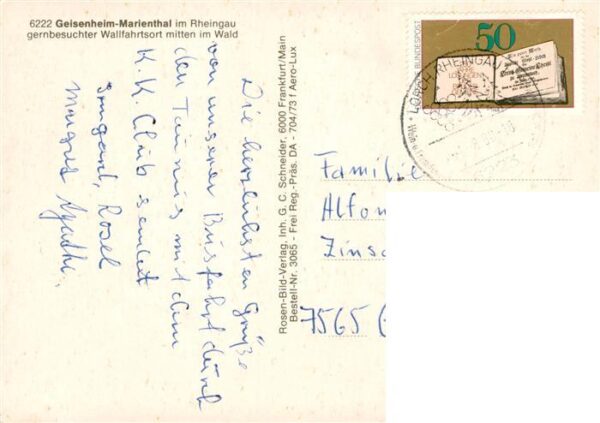 6222 Geisenheim-Marienthal im Rheingau
gernbesuchter Wallfahrtsort mitten im Wald
Die herzlichsten Grüße
von unserer Busfahrt durch
den Taunus mit dem
K.K. Club sendet
Irmgard, Rosel
Margret Agathe.
Rosen-Bild-Verlag, Inh. G. C. Schneider, 6000 Frankfurt/Main
Bestell-Nr. 3065 · Frei Reg.-Präs. DA - 704/73 f Aero-Lux
50
DEUTSCHE BUNDESPOST
LORCH, RHEINGAU
Familie
Alfon
Zinsc
7565